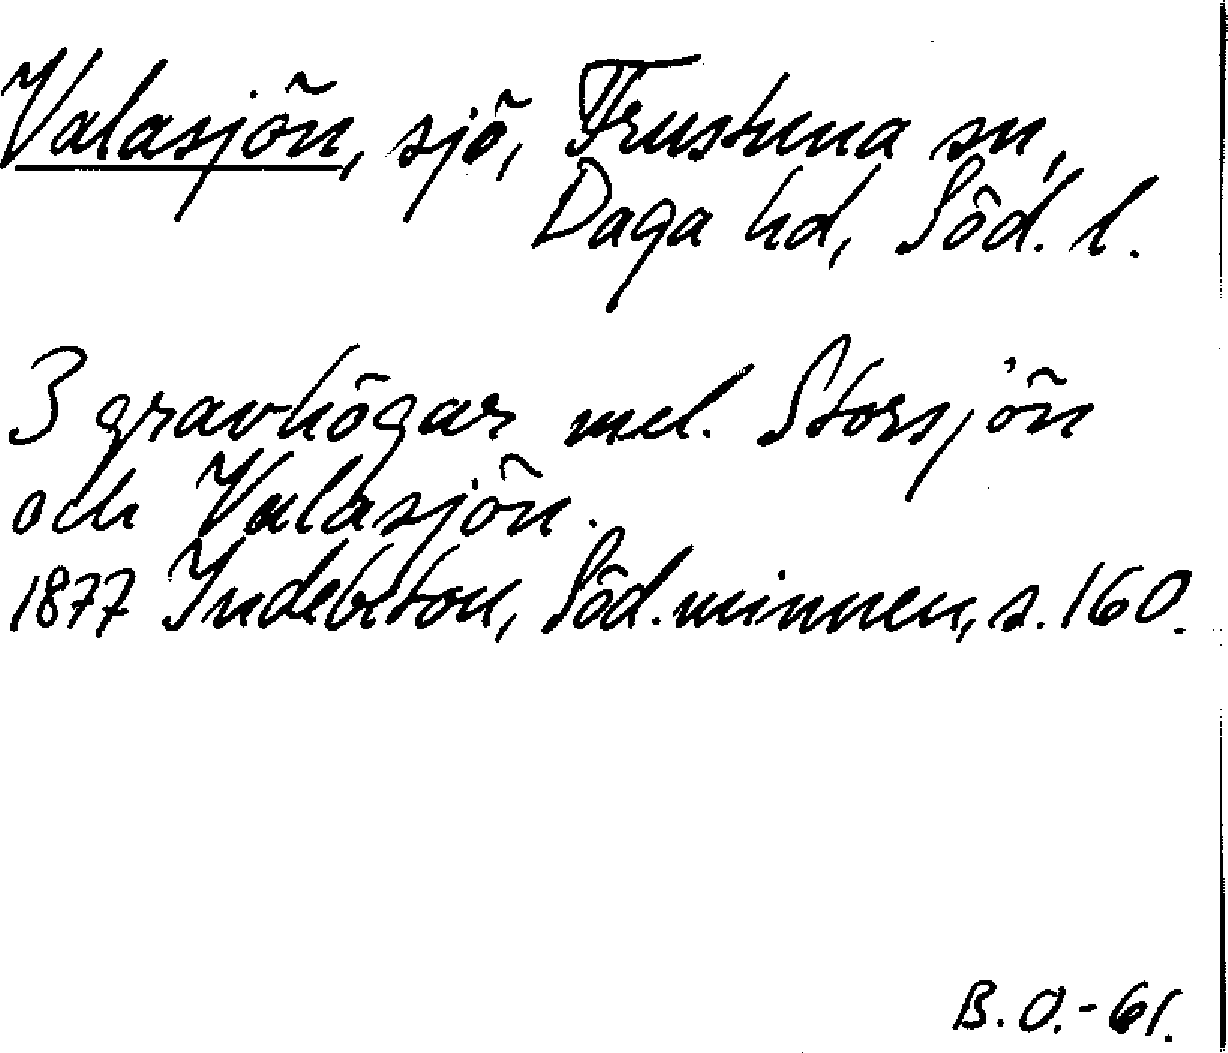 Valasjön, sjö, Frustuna sn,
Daga hd, Söd. l.
3 gravhögar mel. Storsjön
och Valasjön.
1877 Indebetou, Söd. minnen, s. 160.
B. O. - 61.